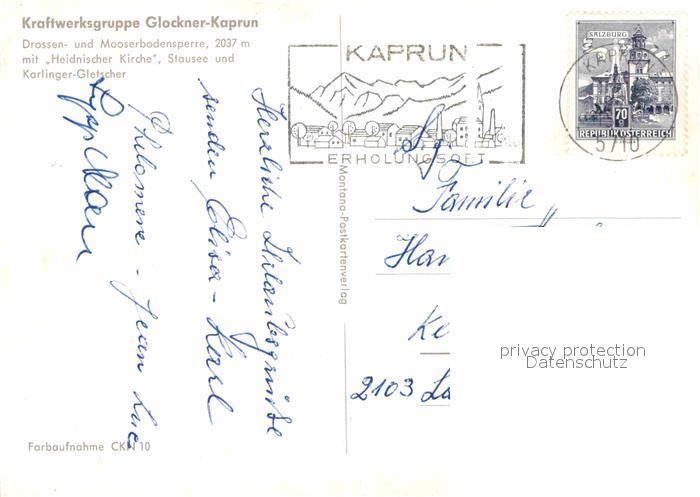 Kraftwerksgruppe Glockner-Kaprun
Drossen- und Mooserbodensperre, 2037 m
mit „Heidnischer Kirche", Stausee und
Karlinger-Gletscher
KAPRUN
ERHOLUNGSORT
SALZBURG
70
REPUBLIK ÖSTERREICH
KAPRUN
5710
Herzliche Urlaubsgrüße
senden Elisa - Karl
Philomene - Jean Luc
Montana-Postkartenverlag
Familie
Har
Ke
2103 La
privacy protection
Datenschutz
Farbaufnahme CKN 10